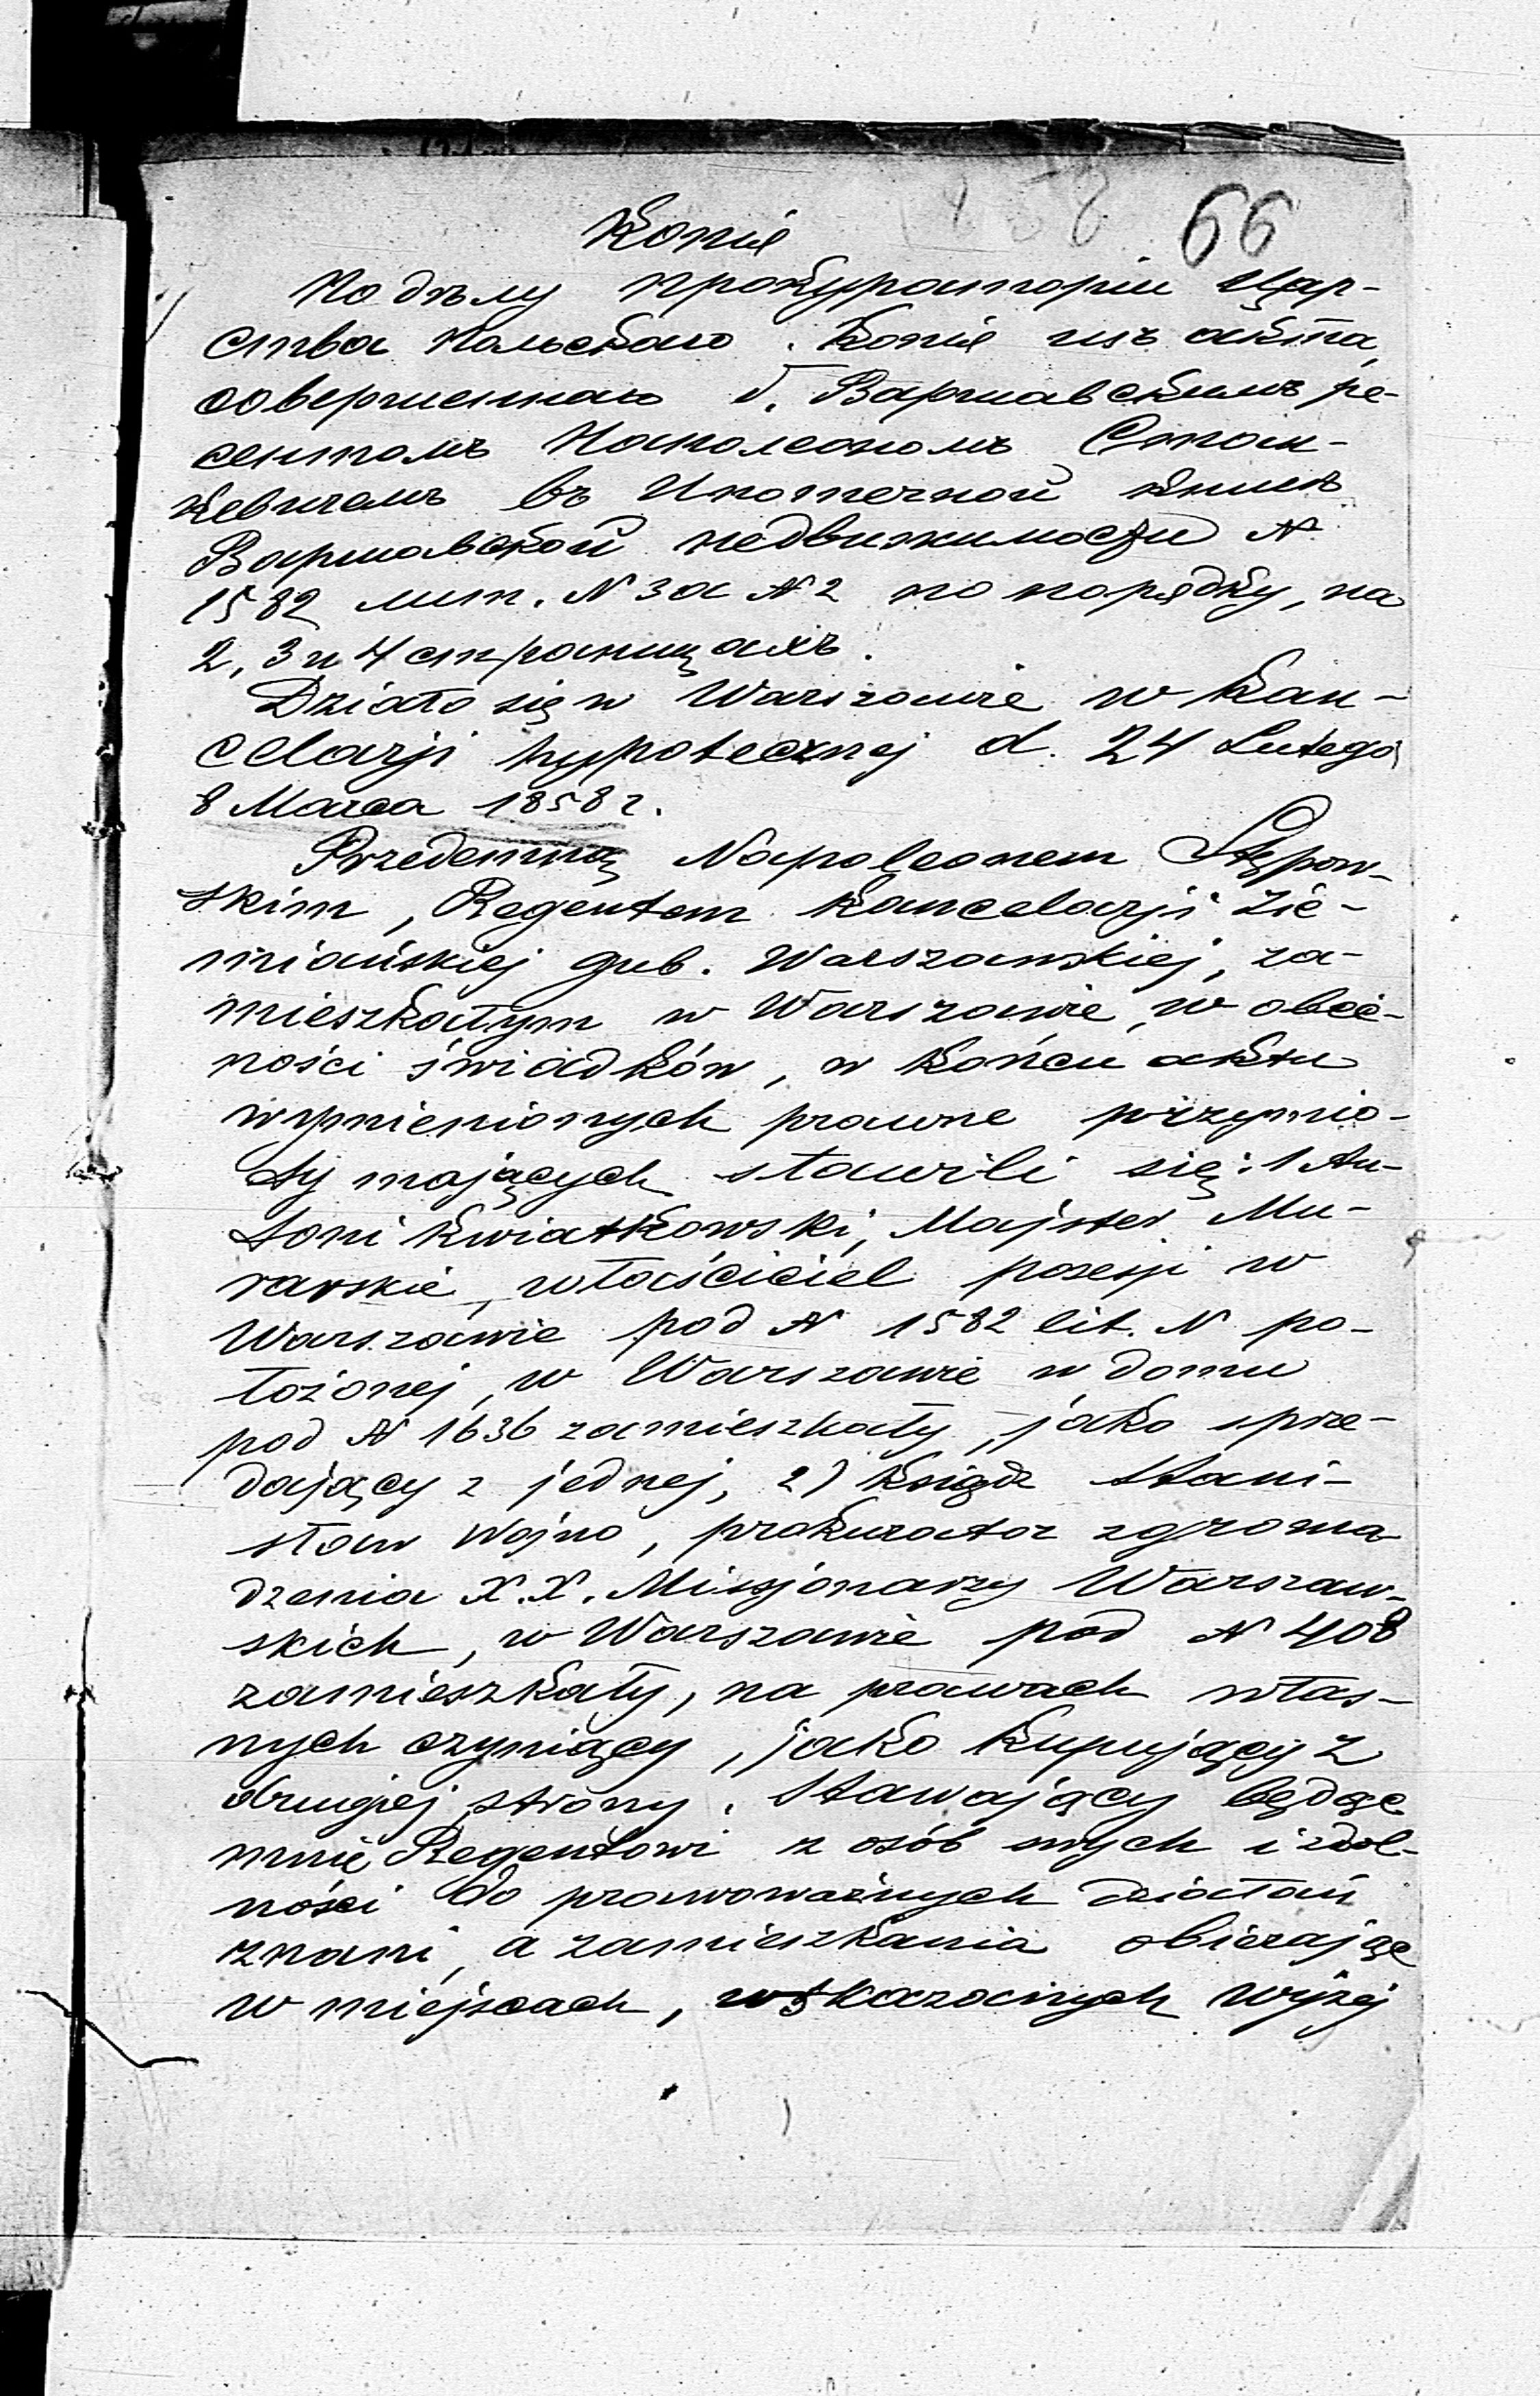 66
Копія
По дѣлу прокураторіи Цар-
ства Польскаго. Копія изъ акта,
совершеннаго б. Варшавскимъ ре-
гентомъ Наполеономъ
въ Ипотечной книгѣ
Варшавской недвижимости №
1582 лит. N за № 2 по порядку, на
2, 3 и 4 страницахъ.
Działo się w Warszawie w kan-
celarji hypotecznej d. 24 Lutego
8 Marca 1858 r.
Przedemną Napoleonem Stępow-
skim, Regentem kancelarji Zie-
miańskiej gub. Warszawskiej, za-
mieszkałym w Warszawie, w obec-
ności świadków, w końcu aktu
wymienionych prawne przymio-
ty mających stawili się: 1 An-
toni Kwiatkowski, Majster Mu-
rarskie, właściciel posesji w
Warszawie pod N 1582 lit. N po-
łożonej, w Warszawie w domu
pod N 1636 zamieszkały, jako sprze-
dający z jednej, 2) Ksiądz Stani-
sław Wojno, prokurator zgroma
dzenia X.X. Missjonarzy Warszaw-
skich, w Warszawie pod N 408
zamieszkały, na prawach włas-
nych czyniący, jako kupujący z
drugiej strony. Stawający będąc
mnie Regentowi z osób swych i zdol-
ności do prawoważnych działań
znani, a zamieszkania obierając
w miejscach, wskazanych wyżej